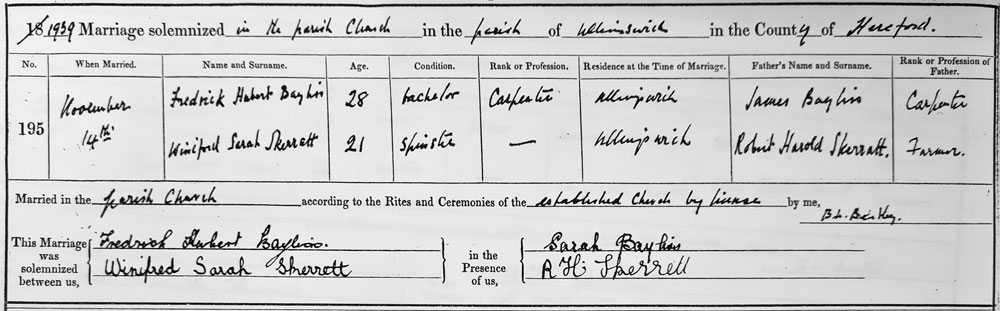 18 1939 Marriage solemnized in the parish Church in the parish of Ullingswick in the County of Hereford.
No. When Married. Name and Surname. Age. Condition. Rank or Profession. Residence at the Time of Marriage. Father's Name and Surname. Rank or Profession of Father.
195 November 14th Fredrick Hubert Bayliss 28 bachelor Carpenter Ullingswick James Bayliss Carpenter
Winifred Sarah Skerratt 21 Spinster — Ullingswick Robert Harold Skerratt. Farmer.
Married in the parish Church according to the Rites and Ceremonies of the established Church by license by me,
This Marriage was solemnized between us, Fredrick Hubert Bayliss. in the Presence of us, Sarah Bayliss
Winifred Sarah Skerrett R H Skerrett